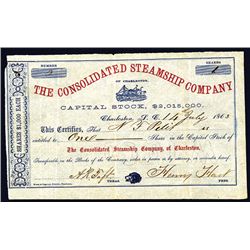 NUMBER
SHARES
1
THE CONSOLIDATED STEAMSHIP COMPANY
OF CHARLESTON.
CAPITAL STOCK, $2,015,000.
SHARES $1,000 EACH
Charleston, S. C. 14 July 1863
This Certifies, That
is
entitled to One Share in the Capital Stock of
The Consolidated Steamship Company, of Charleston.
Transferable in the Books of the Company, either in person or by attorney, on surrender of this Certificate.
TREAS.
PRES.